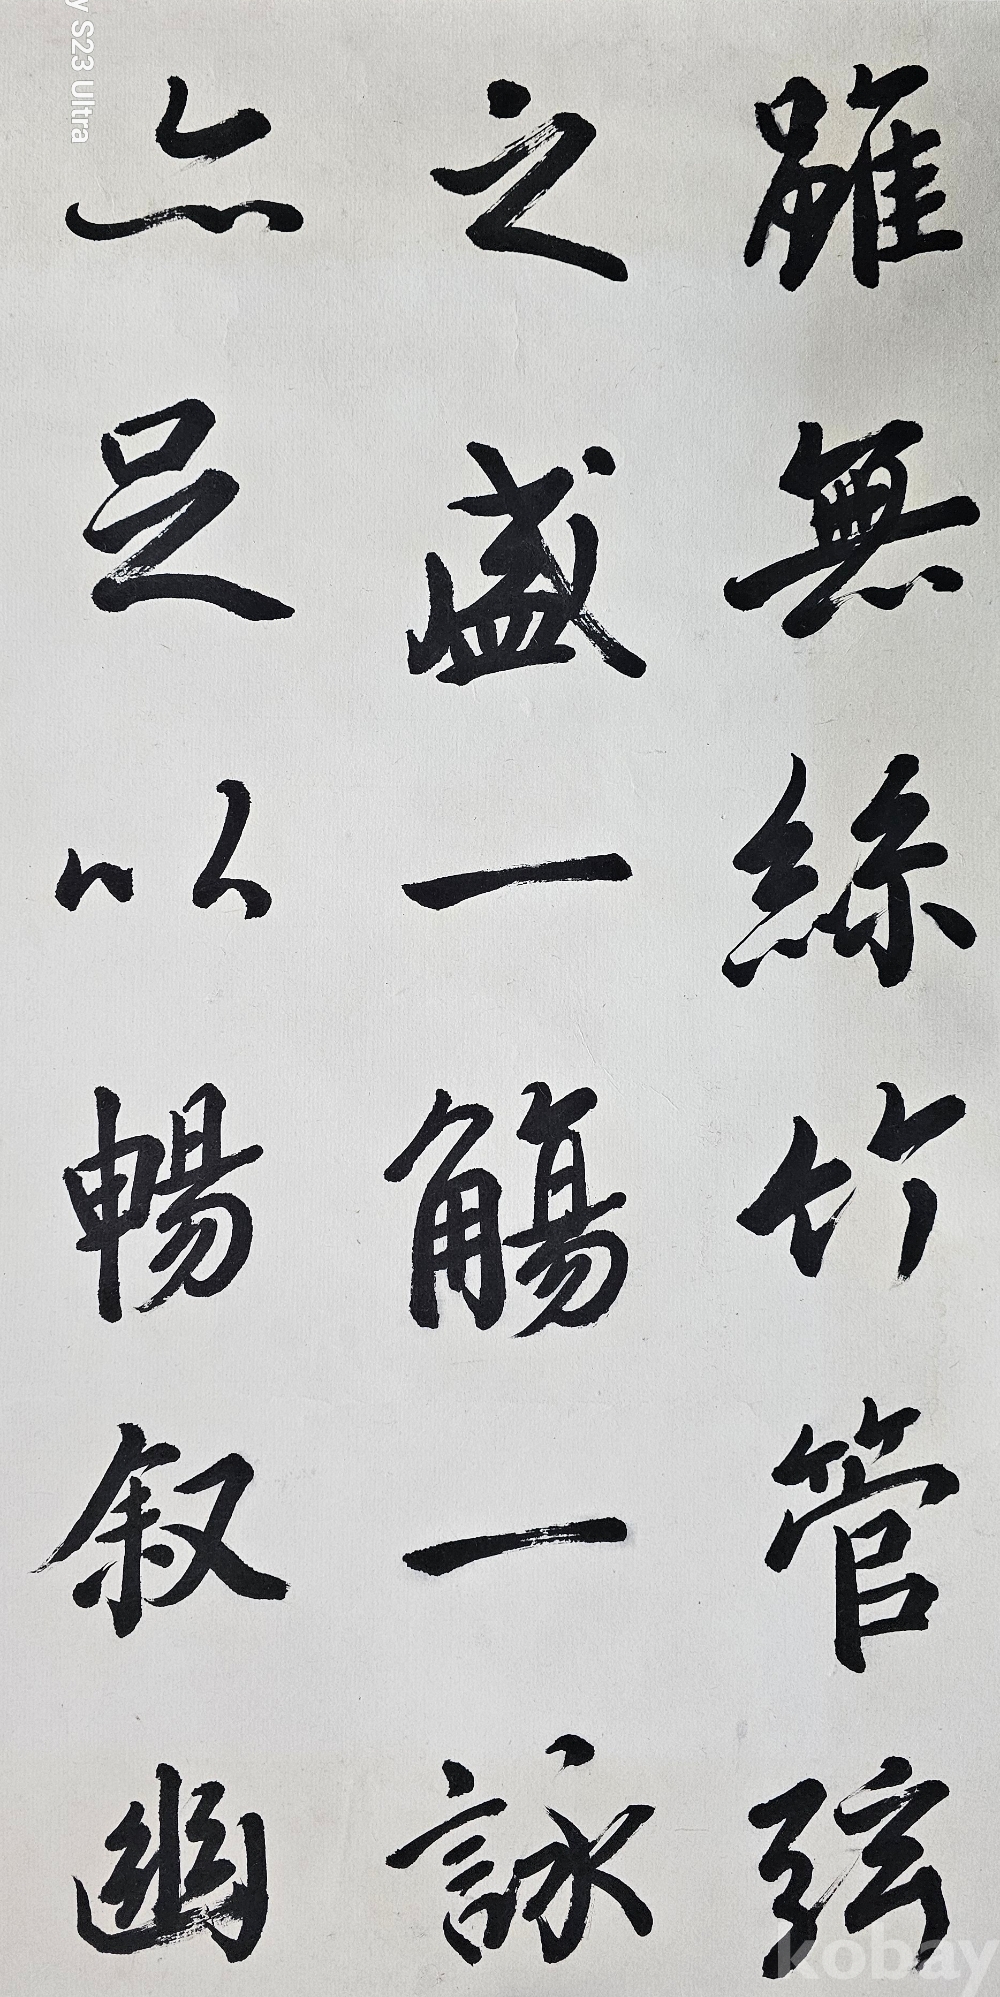 雖無絲竹管弦
之盛一觴一詠
亦足以暢叙幽
y S23 Ultra
kobay